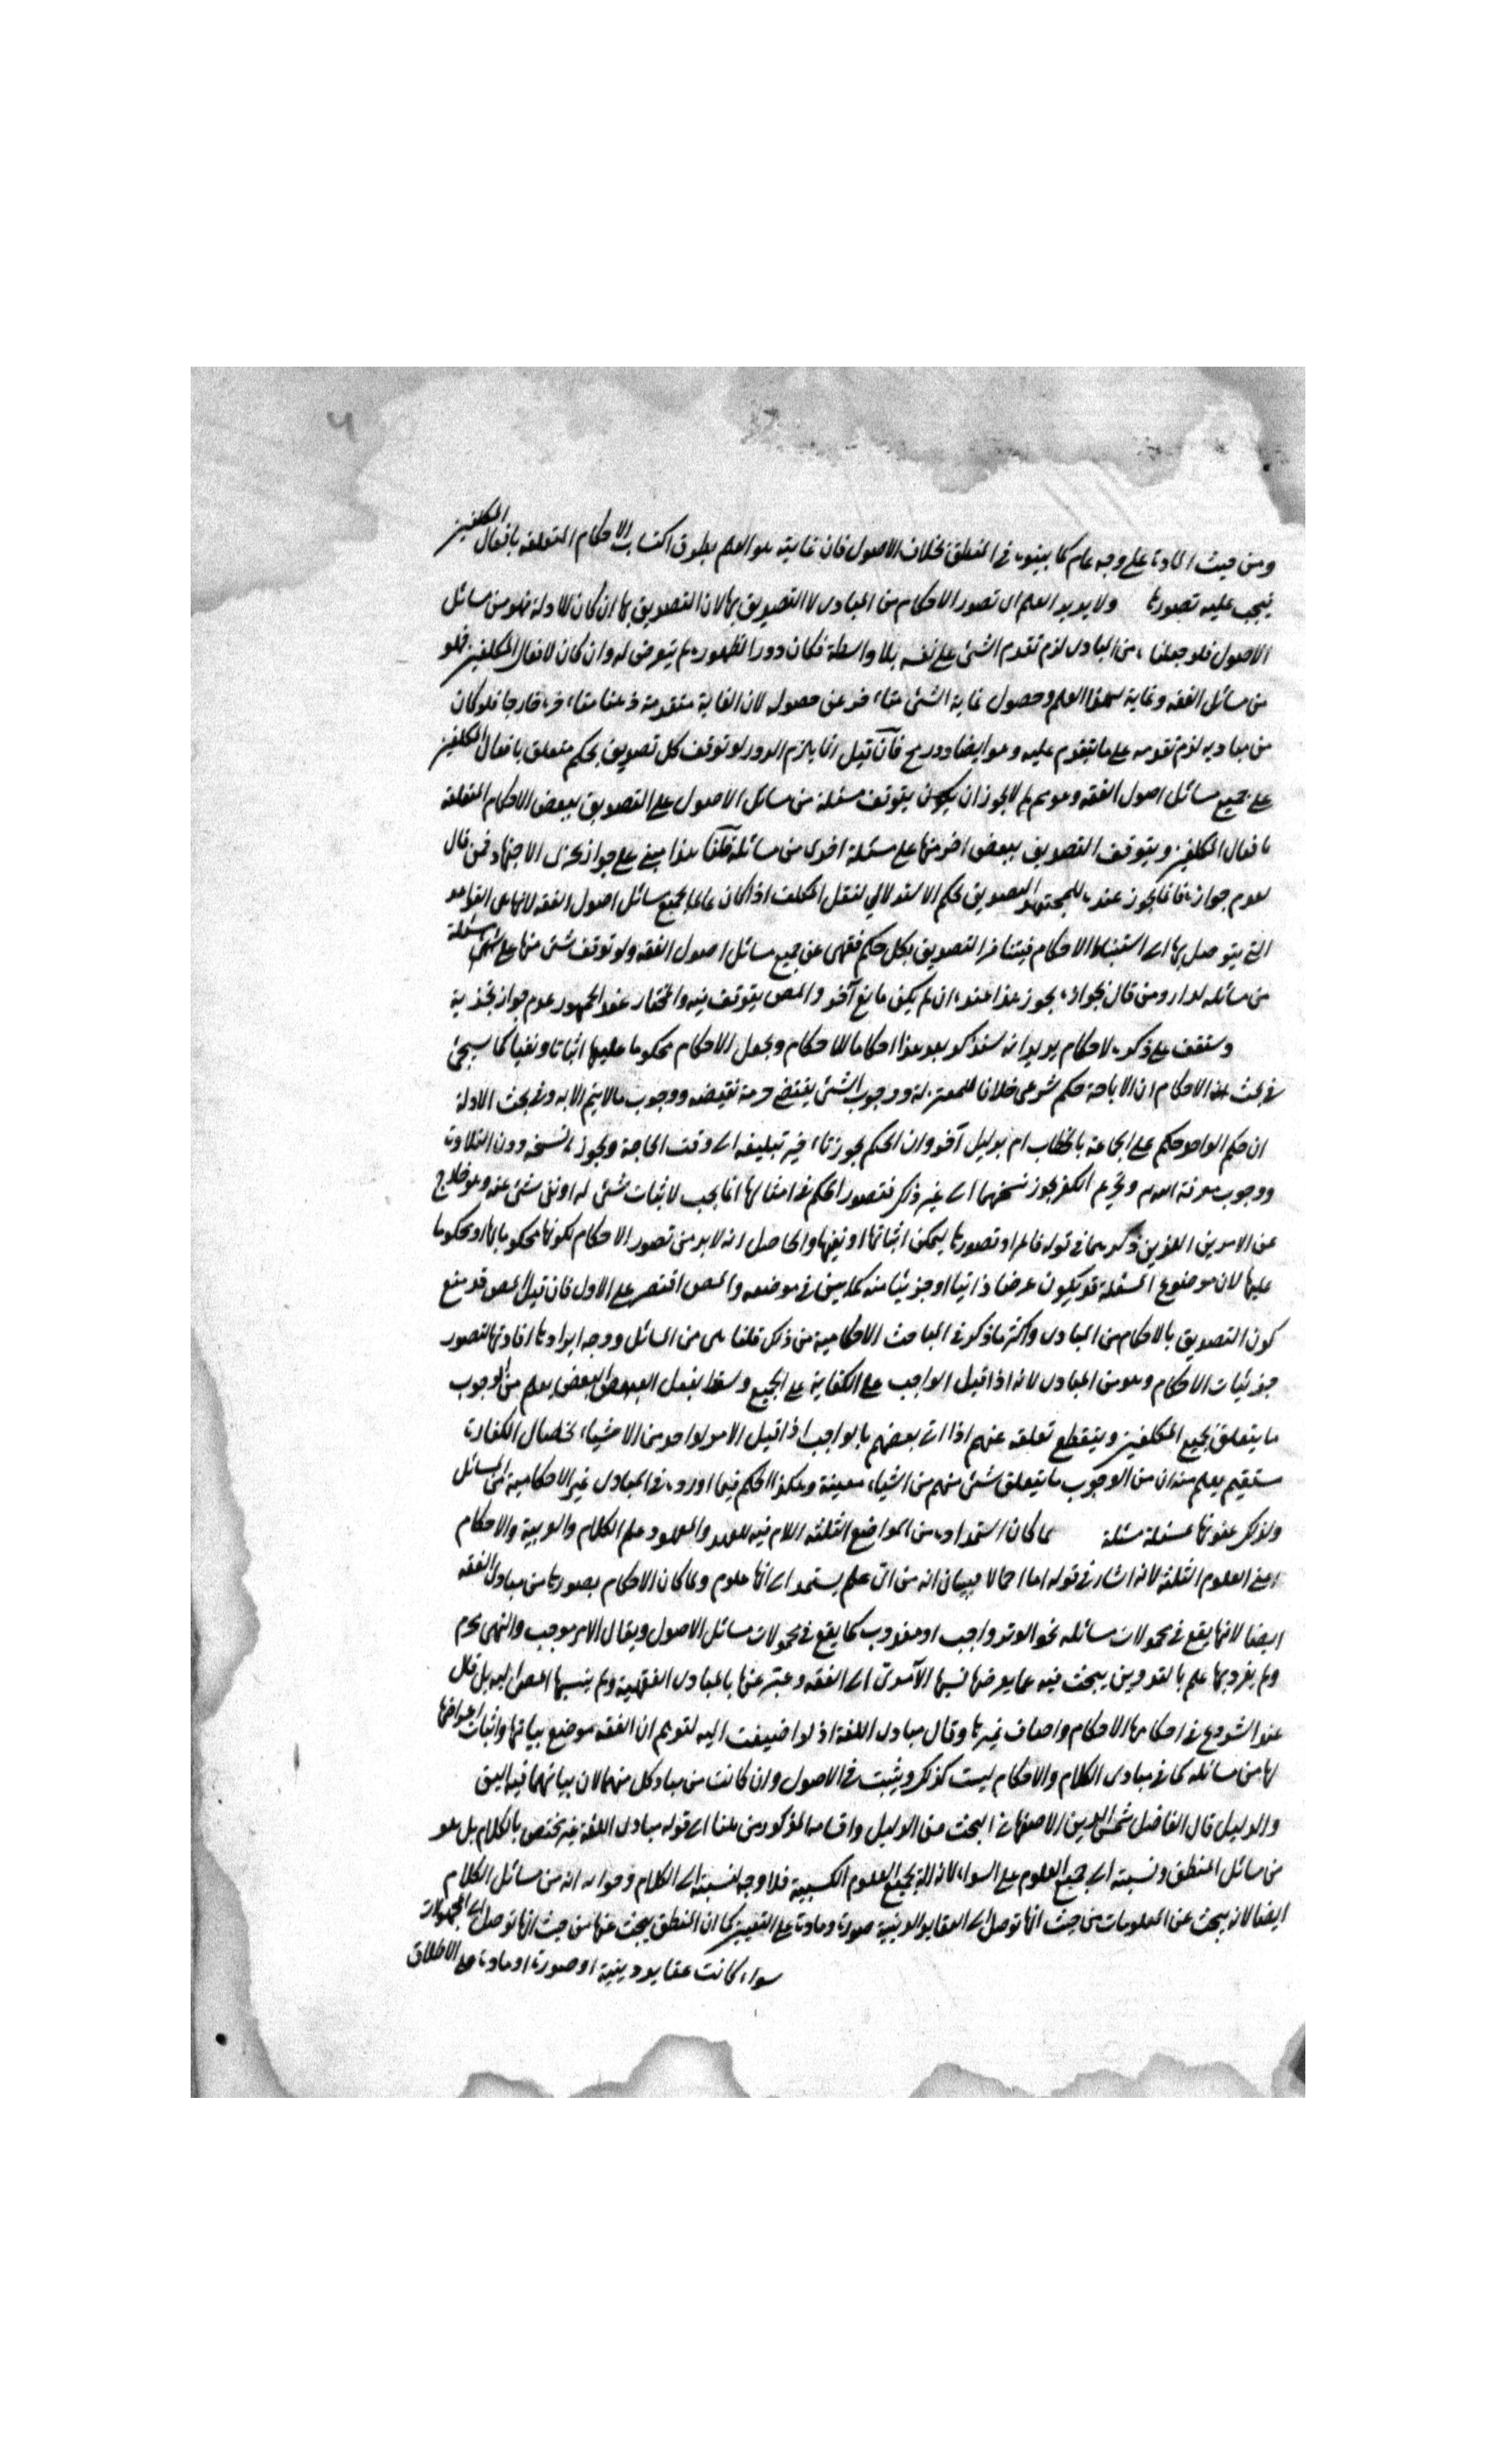 ومن حيث المادة على وجه عام كما بينوه في المنطق بخلاف الاصول فان غايته هو العلم بطرق اكتساب الاحكام المتعلقة بافعال المكلفين
فيجب عليه تصورها ولا يريد العلم اى تصور الاحكام من المبادى لا التصديق بها لان التصديق بها ان كان للادلة فهو من مسائل
الاصول فلو جعلناه من المبادى لزم تقدم الشئ على نفسه بلا واسطة فكان دورا لظهوره لم يتعرض له وان كان لافعال المكلفين فهو
من مسائل الفقه وغاية لهذا العلم وحصول غاية الشئ متأخر عن حصوله لان الغاية متقدمة ذهنا متأخرة خارجا فلو كان
من مباديه لزم تقدمه على ما يتقدم عليه وهو ايضا دور فان قيل انما يلزم الدور لو توقف كل تصديق بحكم متعلق بافعال المكلفين
على جميع مسائل اصول الفقه وهو مم لم لا يجوز ان يتوقف مسئلة من مسائل الاصول على التصديق ببعض الاحكام المتعلقة
بافعال المكلفين ويتوقف التصديق ببعض اخر منها على مسئلة اخرى من مسائله قلنا هذا مبنى على جواز تجزى الاجتهاد فمن قال
بعدم جوازه فانما يجوز عنده للمجتهد التصديق بحكم الاستدلالي لفعل المكلف اذا كان عالما بجميع مسائل اصول الفقه لانها هى القواعد
التي يتوصل بها الى استنباط الاحكام فيتأخر التصديق بكل حكم فقهى عن جميع مسائل اصول الفقه ولو توقف شئ منها على شئ مسئلة
من مسائله لدار ومن قال بجوازه يجوز هذا عنده ان لم يكن مانع آخر والمص يتوقف فيه والمختار عند الجمهور عدم جواز تجزية
وستقف على ذكره لاحكام يريد انه سنذكر بعد هذا احكاما للاحكام ويجعل الاحكام محكوما عليها اثباتا ونفيا كما سيجئ
في بحث الاحكام ان الاباحة حكم شرعى خلافا للمعتزلة ووجوب الشئ يقتضى حرمة نقيضه ووجوب ما لا يتم الا به وفى بحث الادلة
ان حكم الواحد حكم على الجماعة بالخطاب ام بدليل آخر وان الحكم يجوز تأخير تبليغه الى وقت الحاجة ويجوز نسخه دون التلاوة
ووجوب معرفة الله وتحريم الكفر يجوز نسخهما الى غير ذلك فتصور الحكم في امثالها انما يجب لاثبات شئ له او نفى شئ عنه وهو خارج
عن الامرين اللذين ذكرهما في قوله فالمراد تصورها ليمكن اثباتها او نفيها والحاصل انه لابد من تصور الاحكام لكونها محكوما بها او محكوما
عليها لان موضوع المسئلة قد يكون عرضا ذاتيا او جزئيا منه كما بين في موضعه والمص اقتصر على الاول فان قيل المص قد منع
كون التصديق بالاحكام من المبادى واكثر ما ذكر في المباحث الاحكامية من ذلك قلنا هى من المسائل ووجه ايرادها افادتها لتصور
جزئيات الاحكام وهو من المبادى لانه اذا قيل الواجب على الكفاية على الجميع وسقط بفعل البعض يعلم من الوجوب
ما يتعلق بجميع المكلفين وينقطع تعلقه عنهم اذا اتى بعضهم بالواجب اذا قيل الامر بواحد من الاشياء كخصال الكفارة
مستقيم يعلم منه ان من الوجوب ما يتعلق شئ مبهم من اشياء معينة وهكذا الحكم فيما اورده في المبادى غير الاحكامية من المسائل
ولذلك عنونها بمسئلة مسئلة لما كان استمداده من المواضع الثلثة اللام فيه للعهد والمعهود علم الكلام والعربية والاحكام
اعنى العلوم الثلثة لانه اشار في قوله اما اجمالا فببيان انه من اى علم يستمد الى انها علوم ولما كان الاحكام بصورها من مبادى الفقه
ايضا لانها يقع في محمولات مسائله نحو الوتر واجب او مندوب كما يقع في محمولات مسائل الاصول ويقال الامر موجب والنهى محرم
ولم يفرد بها علم بالتدوين يبحث فيه عما يعرضها نسبها الآمدى الى الفقه وعبر عنها بالمبادى الفقهية ولم ينسبها المص اليه بل قال
عند الشروع في احكامها الاحكام واضاف غيرها وقال مبادى اللغة اذ لو اضيفت اليه لتوهم ان الفقه موضع بيانها واثبات اعراضها
لها من مسائله كما في مبادى الكلام والاحكام ليست كذلك ويثبت في الاصول وان كانت من مباد كل منهما لان بيانهما فيه اليق
والدليل قال الفاضل شمس الدين الاصفهاني البحث عن الدليل واقسامه المذكور من هنا الى قوله مبادى اللغة غير مختص بالكلام بل هو
من مسائل المنطق ونسبته الى جميع العلوم على السواء لانه آلة لجميع العلوم الكسبية فلا وجه لنسبته الى الكلام وجوابه انه من مسائل الكلام
ايضا لانه يبحث عن المعلومات من حيث انها توصل الى العقايد الدينية صورة ومادة على التعيين كما ان المنطق يبحث عنها من حيث انها توصل الى المجهولات
سواء كانت عقايد دينية او صورة او مادة على الاطلاق